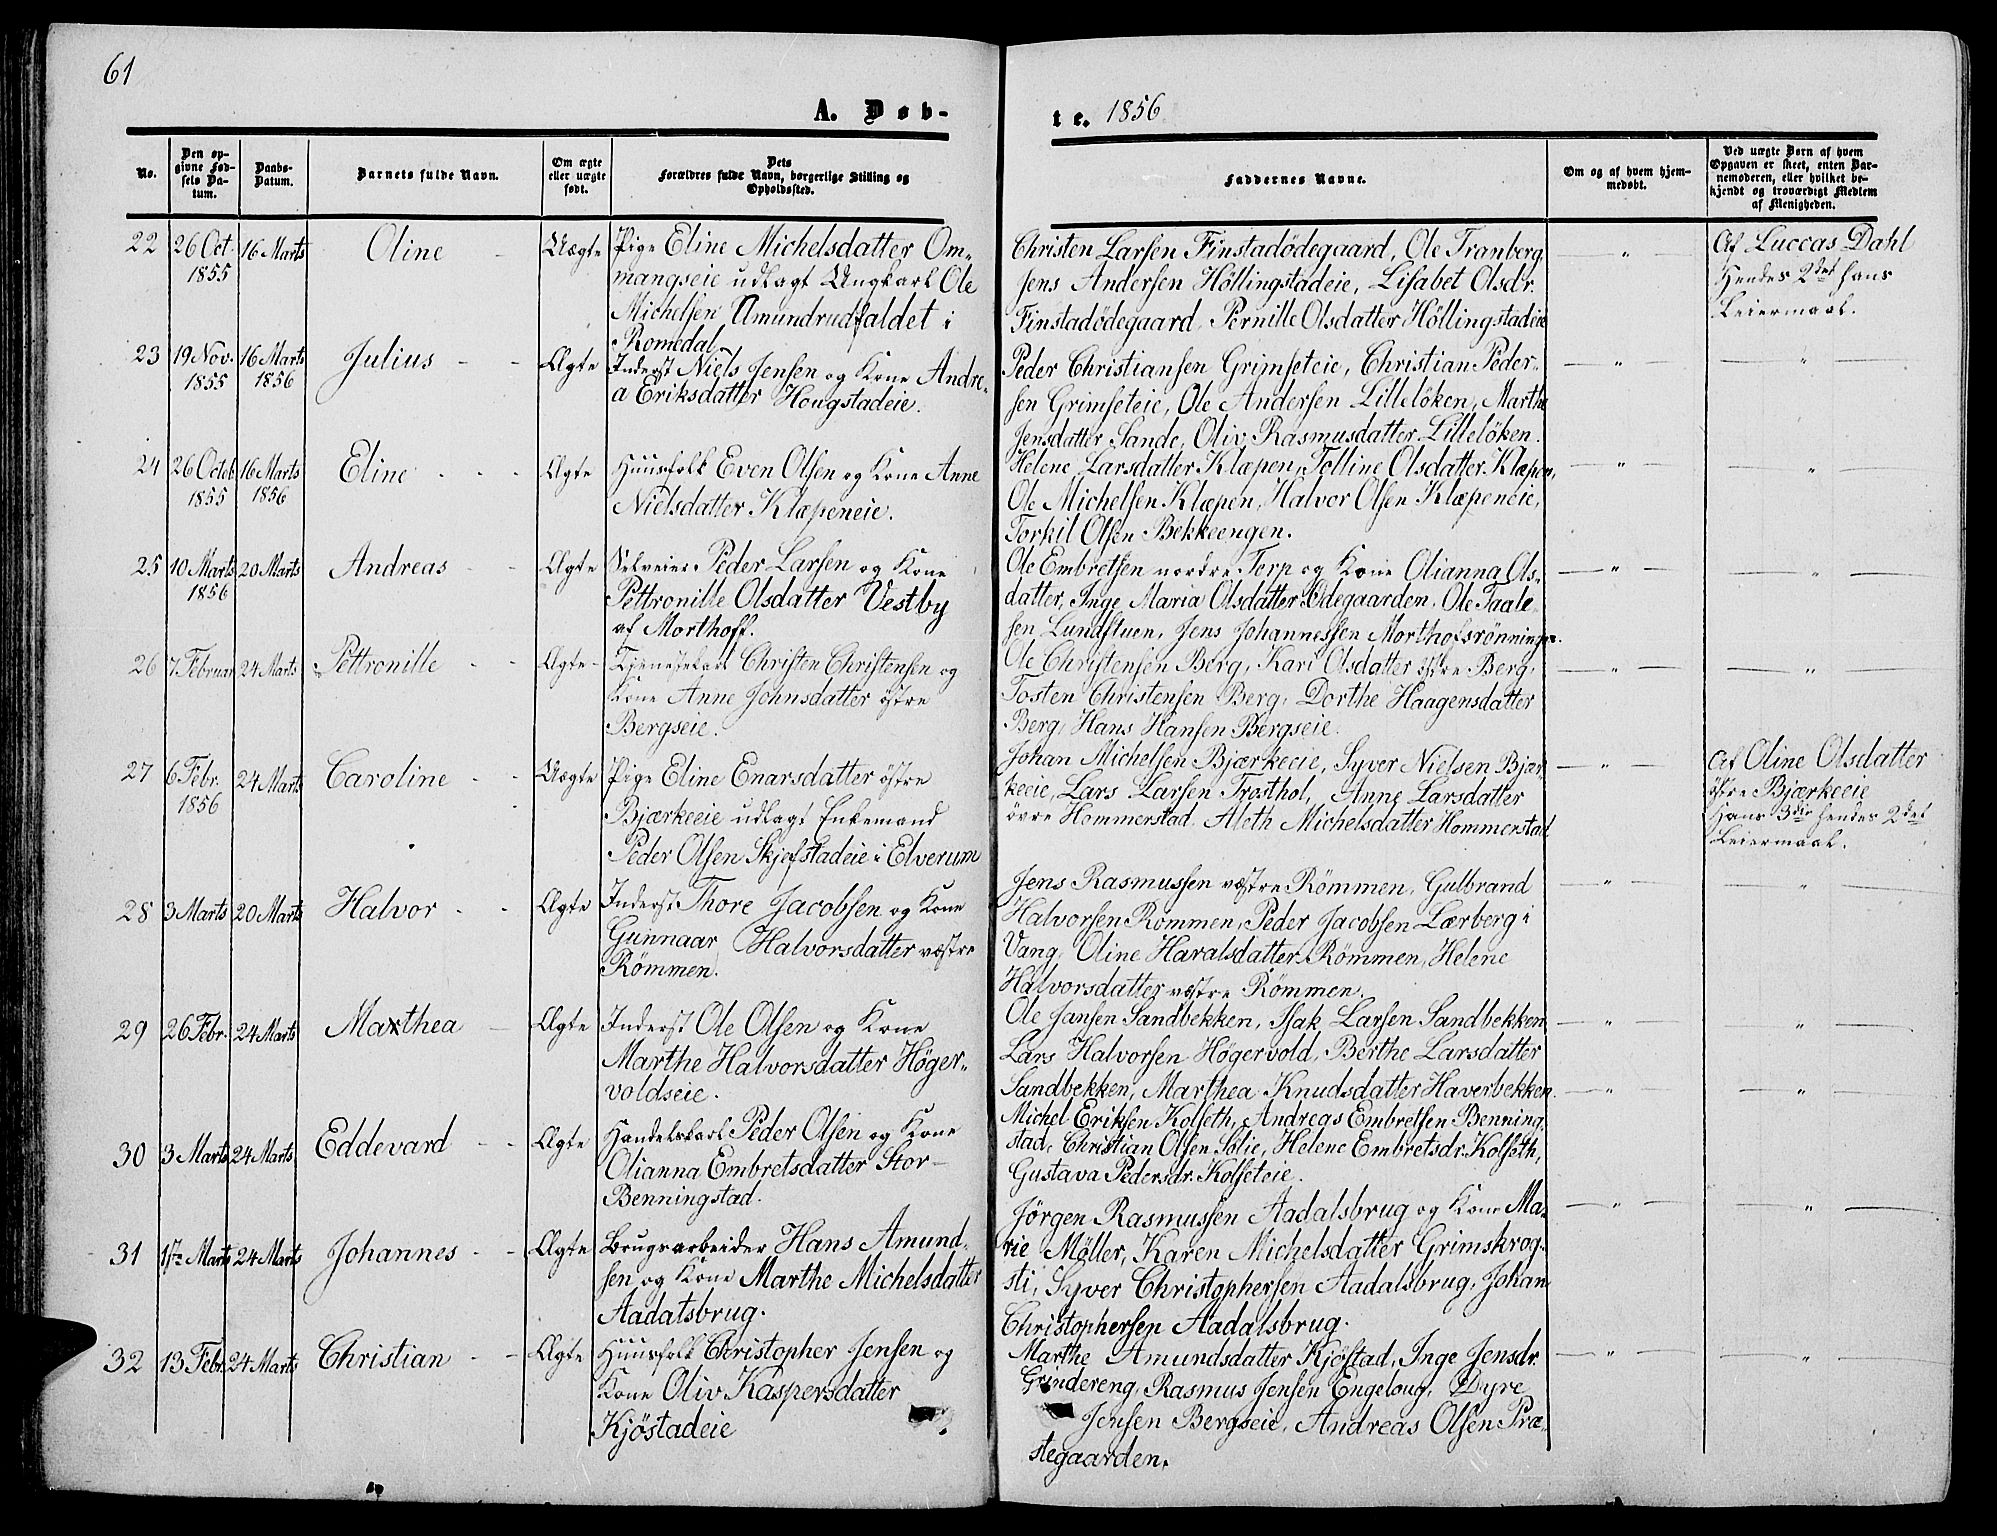 61
A. Døb-
te. 1856
No.
Den op-
givne Fød-
sels Da-
tum.
Daabs-
Datum.
Barnets fulde Navn.
Om ægte
eller uægte
født.
Dets
Forældres fulde Navn, borgerlige Stilling og
Opholdssted.
Faddernes Navne.
Om og af hvem hjem-
medøbt.
Ved uægte Børn af hvem
Opgaven er skeet, enten Bar-
nemoderen, eller hvilket be-
kjendt og troværdigt Medlem
af Menigheden.
22 26 Oct. 1855 16 Marts Oline Uægte
Pige Eline Michelsdatter Om-
mangseie udlagt Ungkarl Ole
Michelsen Amundrudfaldet i
Romedal
Christen Larsen Finstadödegaard, Ole Tranberg,
Jens Andersen Höllingstadeie, Lisabet Olsdr.
Finstadödegaard, Pernille Olsdatter Höllingstadeie
Af Luccas Dahl
Hendes 2det hans
Leiermaal.
23 19 Nov. 1855 16 Marts 1856 Julius Ægte
Inderst Niels Jensen og Kone Andre-
a Eriksdatter Hougstadeie.
Peder Christiansen Grimseteie, Christian Peder-
sen Grimseteie, Ole Andersen Lilleløken, Marthe
Jensdatter Sande, Oliv Rasmusdatter Lilleløken.
24 26 Octob 1855 16 Marts 1856 Eline Ægte
Huusfolk Even Olsen og Kone Anne
Nielsdatter Klæpeneie.
Helene Larsdatter Klæpen, Tolline Olsdatter Klæpen,
Ole Michelsen Klæpen, Halvor Olsen Klæpeneie,
Torkil Olsen Bekkeengen.
25 10 Marts 1856 20 Marts Andreas Ægte
Selveier Peder Larsen og Kone
Pettronille Olsdatter Vestby
af Morthoff.
Ole Embretsen nordre Terp og Kone Olianna Ols-
datter, Inge Maria Olsdatter Ödegaarden, Ole Taale-
sen Lundstuen, Jens Johannessen Mortholsrönningen.
26 7 Februar 24 Marts Pettronille Ægte
Tjenestekarl Christen Christensen og
Kone Anne Johnsdatter östre
Bergseie.
Ole Christensen Berg, Kari Olsdatter östre Berg,
Tosten Christensen Berg, Dorthe Haagensdatter
Berg, Hans Hansen Bergseie.
27 6 Febr. 1856 24 Marts Caroline Uægte
Pige Eline Enarsdatter östre
Bjærkeeie udlagt Enkemand
Peder Olsen Skjefstadeie i Elverum
Johan Michelsen Bjærkeeie, Syver Nielsen Bjær-
keeie, Lars Larsen Trosthol, Anne Larsdatter
övre Hommerstad, Aleth Michelsdatter Hommerstad
Af Oline Olsdatter
östre Bjærkeeie
Hans 3die hendes 2det
Leiermaal.
28 3 Marts 20 Marts Halvor Ægte
Inderst Thore Jacobsen og Kone
Gunnaar Halvorsdatter væstre
Römmen.
Jens Rasmussen væstre Römmen, Gulbrand
Halvorsen Rommen, Peder Jacobsen Lærberg i
Vang, Oline Haralsdatter Römmen, Helene
Halvorsdatter væstre Römmen.
29 26 Febr. 24 Marts Marthea Ægte
Inderst Ole Olsen og Kone
Marthe Halvorsdatter Höger-
voldseie.
Ole Jansen Sandbekken, Isak Larsen Sandbekken
Lars Halvorsen Högervold, Berthe Larsdatter
Sandbekken, Marthea Knudsdatter Haverbekken.
30 3 Marts 24 Marts Eddevard Ægte
Handelskarl Peder Olsen og Kone
Olianna Embretsdatter Stor-
Benningstad.
Michel Eriksen Kolseth, Andreas Embretsen Benning-
stad, Christian Olsen Solie, Helene Embretsdr. Kolseth,
Gustava Pedersdr. Kolseteie.
31 1ste Marts 24 Marts Johannes Ægte
Brugsarbeider Hans Amund-
sen og Kone Marthe Michelsdatter
Aadalsbrug.
Jörgen Rasmussen Aadalsbrug og Kone Ma-
rie Möller, Karen Michelsdatter Grimskrog-
sti, Syver Christophersen Aadalsbrug, Johan
Christophersen Aadalsbrug.
32 13 Febr. 24 Marts Christian Ægte
Huusfolk Christopher Jensen og
Kone Oliv Kaspersdatter
Kjöstadeie
Marthe Amundsdatter Kjöstad, Inge Jensdr.
Grindereng, Rasmus Jensen Engeloug, Dyre
Jensen Bergseie, Andreas Olsen Præ-
stegaarden.